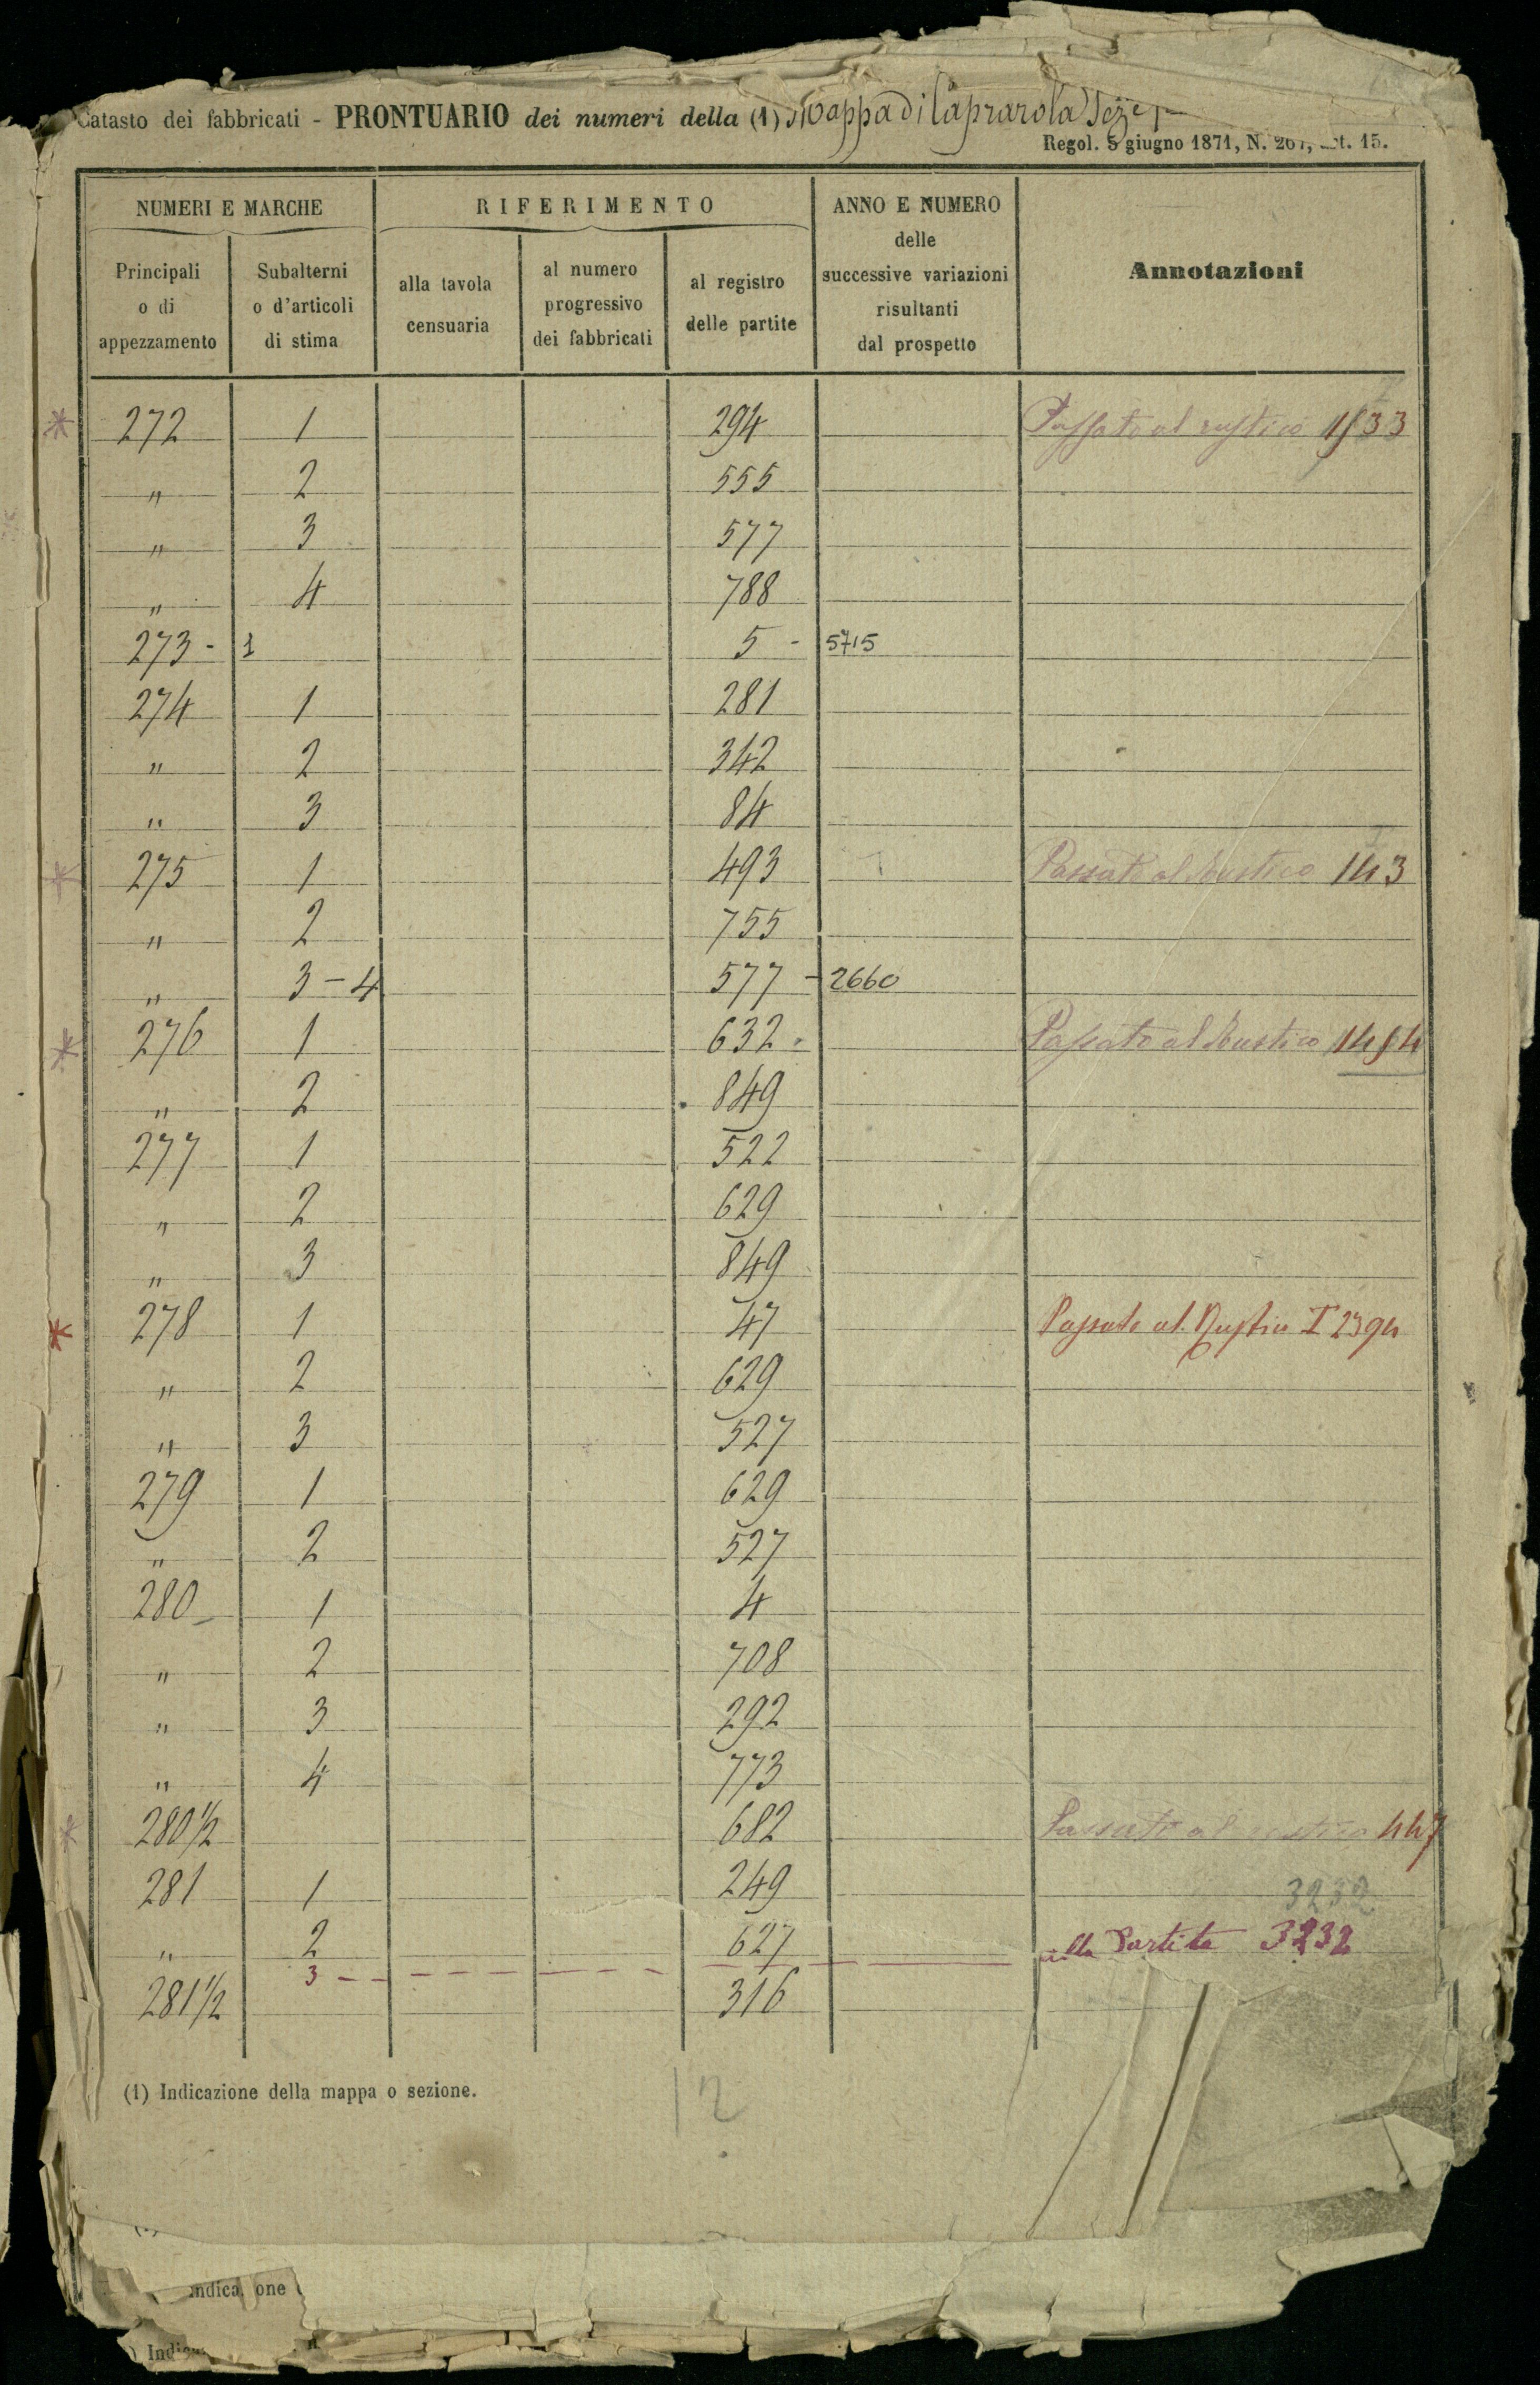 Catasto dei fabbricati - PRONTUARIO dei numeri della (1) Mappa di Caprarola Sez.e
Regol. 5 giugno 1871, N. 267, art. 15.
NUMERI E MARCHE RIFERIMENTO ANNO E NUMERO delle successive variazioni risultanti dal prospetto Annotazioni
Principali o di appezzamento Subalterni o d'articoli di stima alla tavola censuaria al numero progressivo dei fabbricati al registro delle partite
* 272 1 294 Passato al rustico
" 2 555
" 3 577
" 4 788
273 - 1 5 - 5715
274 1 281
" 2 342
" 3 84
* 275 1 493 Passato al Rustico
" 2 755
" 3 - 4 577 - 2660
* 276 1 632 Passato al Rustico
" 2 849
277 1 522
" 2 629
" 3 849
* 278 1 47 Passato al Rustico I 2394
" 2 629
" 3 527
279 1 629
" 2 527
280 1 4
" 2 708
" 3 292
" 4 773
* 280 1/2 682 Passato al rustico 447
281 1 249 3232
" 2 627 alla Partita 3232
3 - - - - - -
281 1/2 316
(1) Indicazione della mappa o sezione.
12